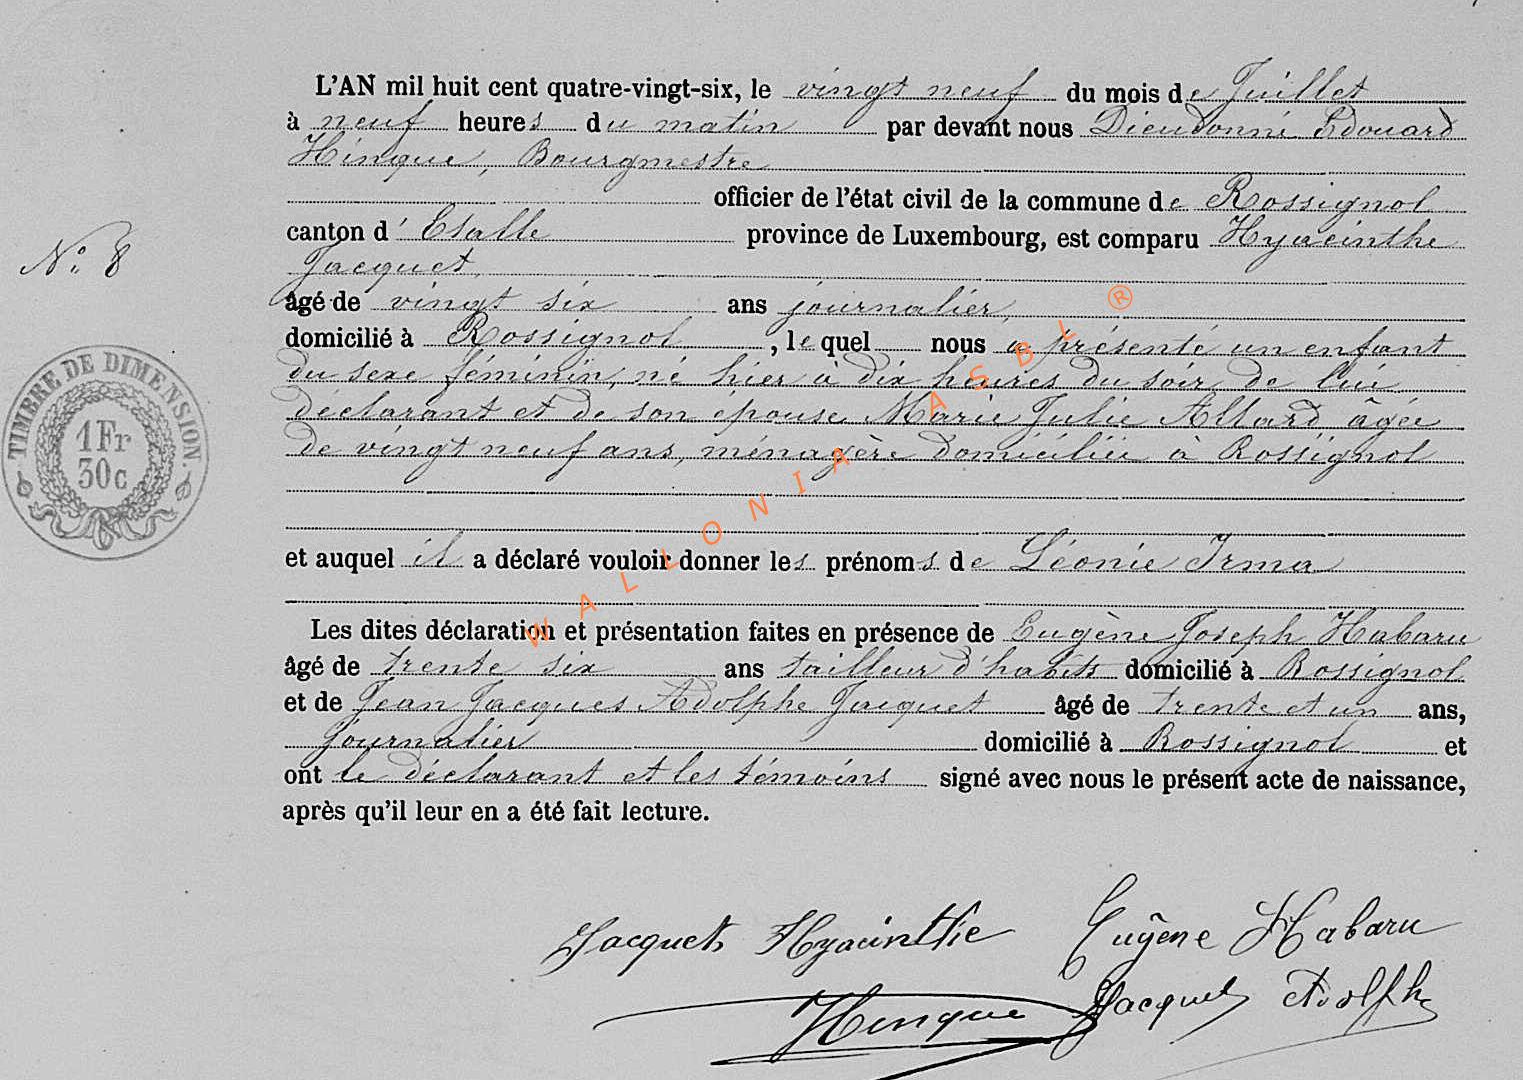 L'AN mil huit cent quatre-vingt-six, le vingt neuf du mois de Juillet
à neuf heures du matin par devant nous Dieudonné Edouard
Hinque, Bourgmestre
officier de l'état civil de la commune de Rossignol
canton d' Etalle province de Luxembourg, est comparu Hyacinthe
Jacquet,
N° 8
âgé de vingt six ans journalier,
domicilié à Rossignol, lequel nous a présenté un enfant
du sexe féminin, né hier à dix heures du soir, de lui
déclarant et de son épouse Marie Julie Allard âgée
de vingt neuf ans, ménagère domiciliée à Rossignol
TIMBRE DE DIMENSION.
1 Fr
30c
et auquel il a déclaré vouloir donner les prénoms de Léonie Irma
Les dites déclaration et présentation faites en présence de Eugène Joseph Habaru
âgé de trente six ans tailleur d'habits domicilié à Rossignol
et de Jean Jacques Adolphe Jacquet âgé de trente et un ans,
journalier domicilié à Rossignol et
ont le déclarant et les témoins signé avec nous le présent acte de naissance,
après qu'il leur en a été fait lecture.
Jacquet Hyacinthe Eugène Habaru
Hinque Jacquet Adolphe
WALLONIA ASBL ®